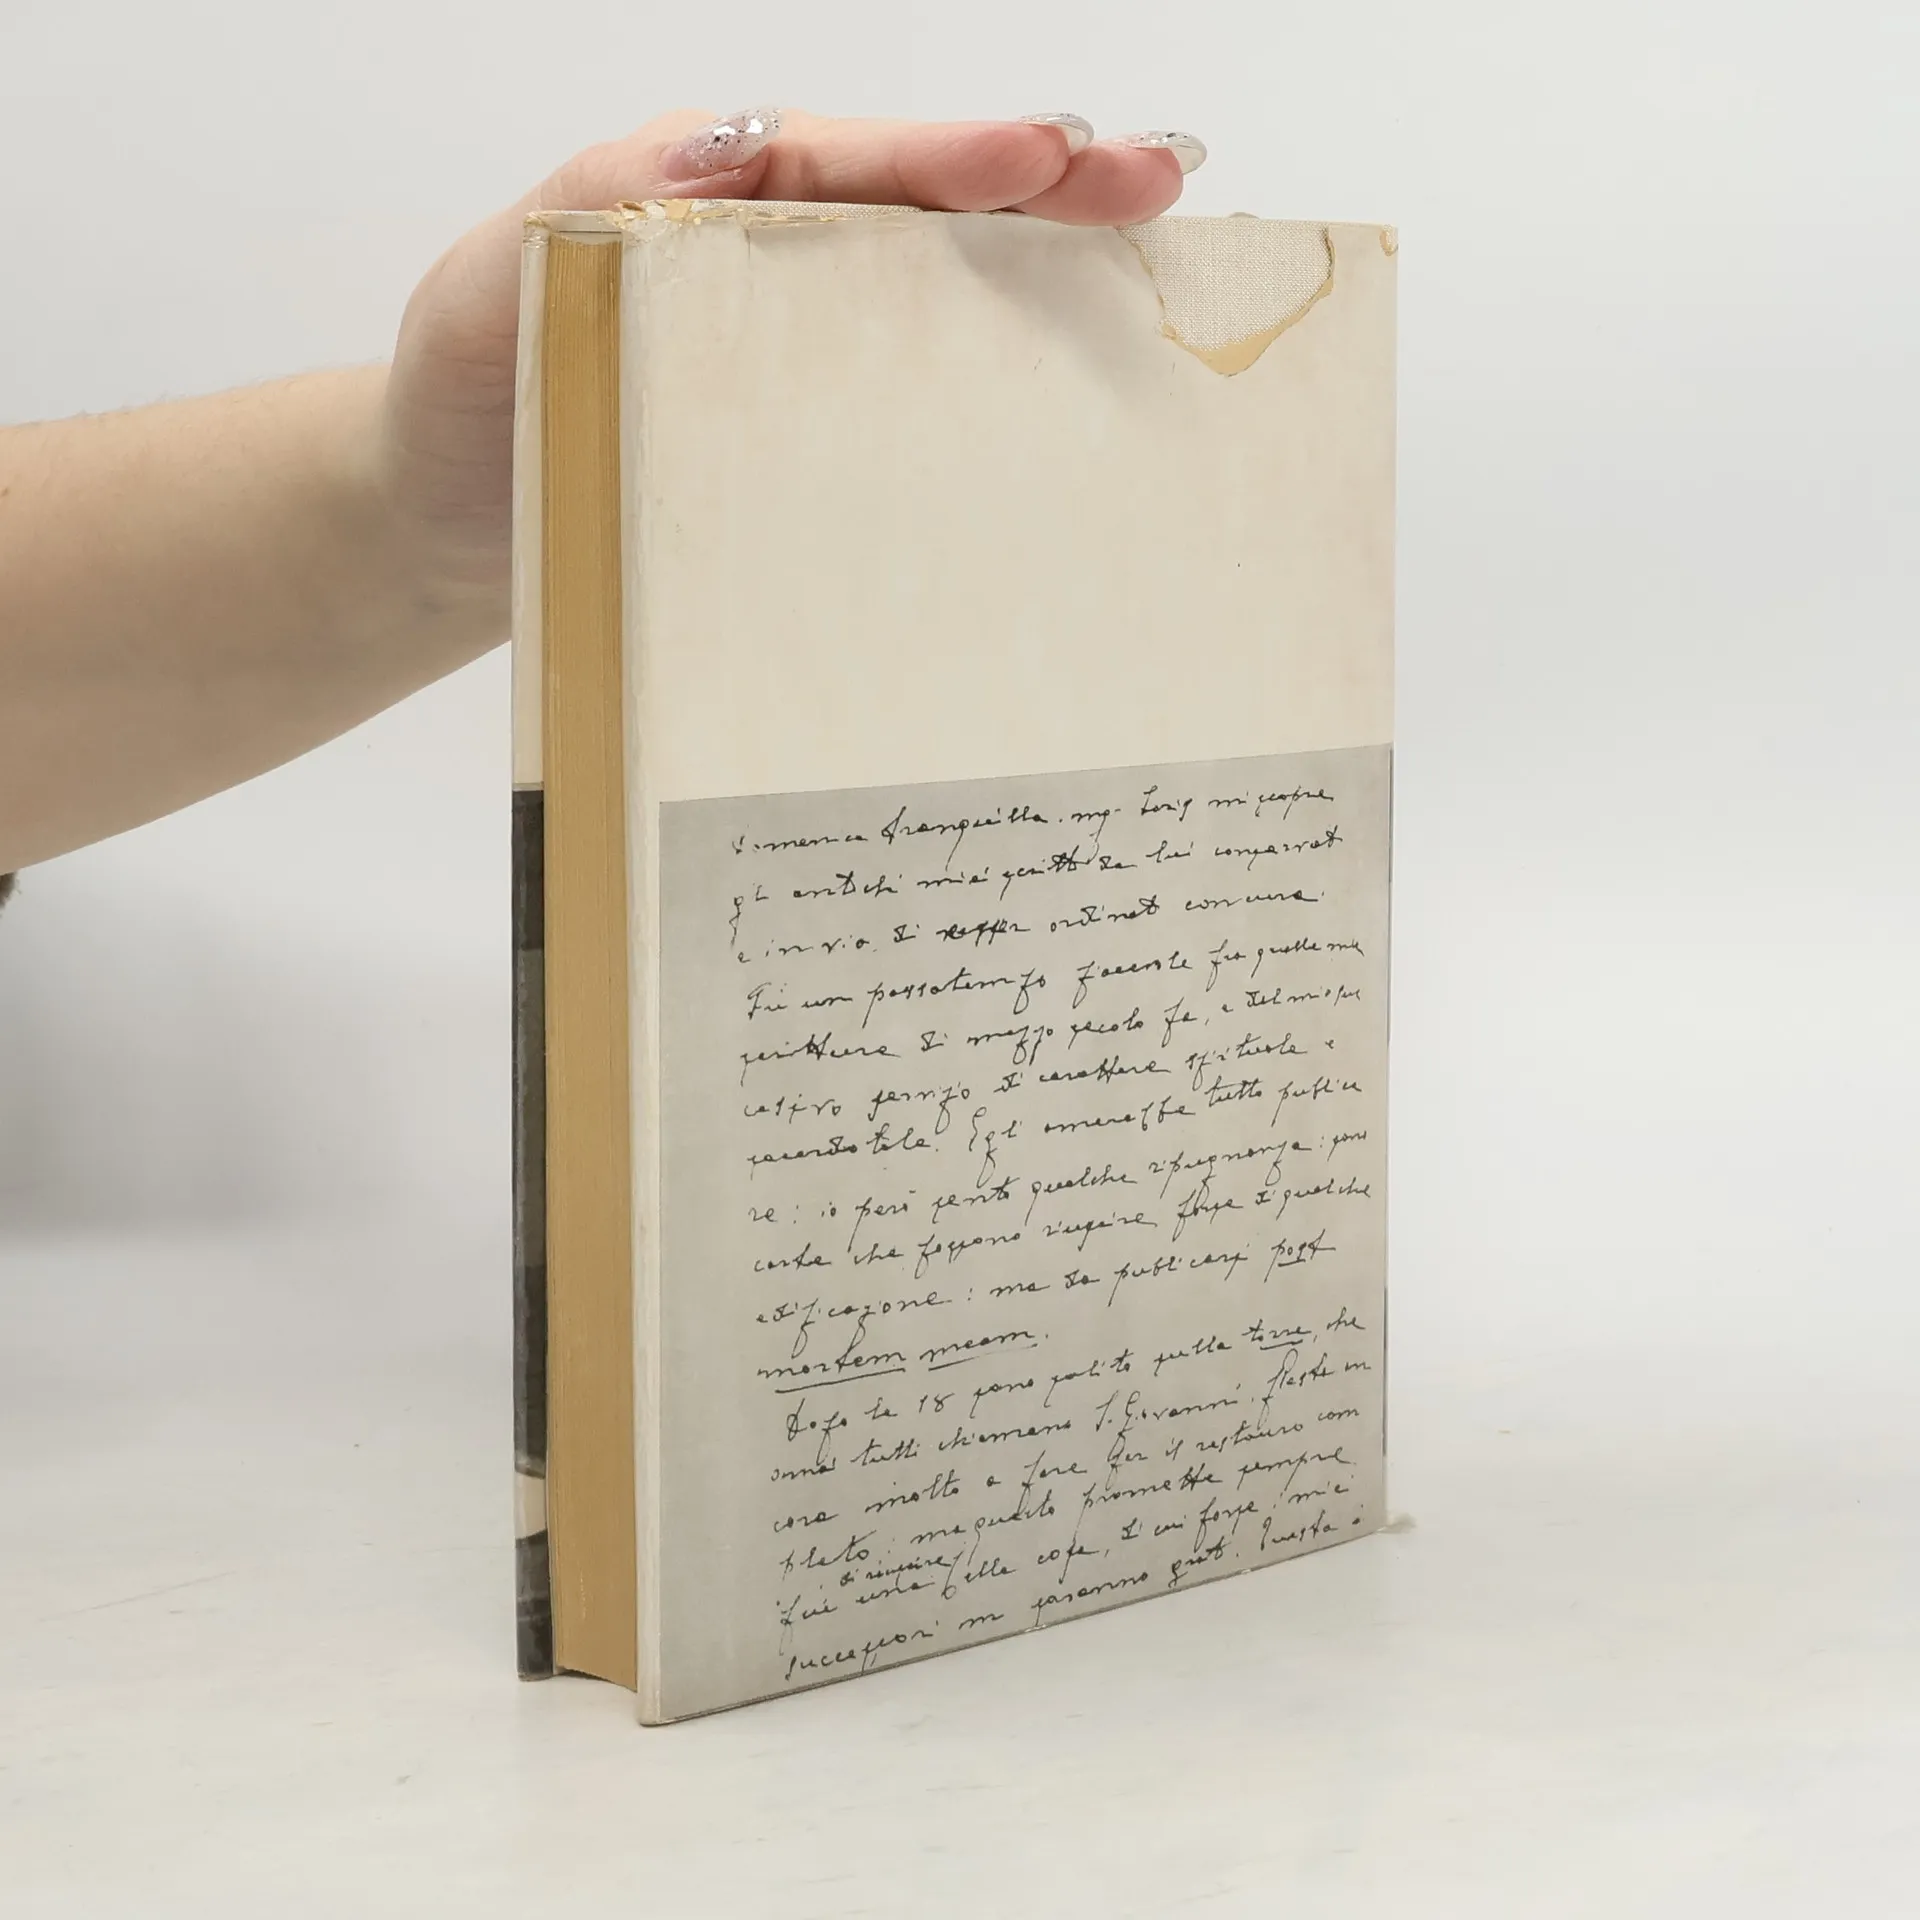 Domenica tranquilla. Mgr Loris mi scopre
gli antichi miei scritti da lui conservati
e in via di esser ordinati con cura.
Fu un passatempo piacevole fra quelle mie
scritture di mezzo secolo fa, e del mio suc
cessivo tempo di carattere spirituale e
sacerdotale. Egli amerebbe tutto pubblica
re: io però sento qualche ripugnanza: sono
carte che possono riuscire forse di qualche
edificazione: ma da pubblicarsi post
mortem meam.
Dopo le 18 sono salito sulla torre, che
ormai tutti chiamano S. Giovanni. Resta an
cora molto a fare per il restauro com
pleto: ma questo promette sempre
di riuscire
più una bella cosa, di cui forse i miei
successori mi saranno grati. Questa è